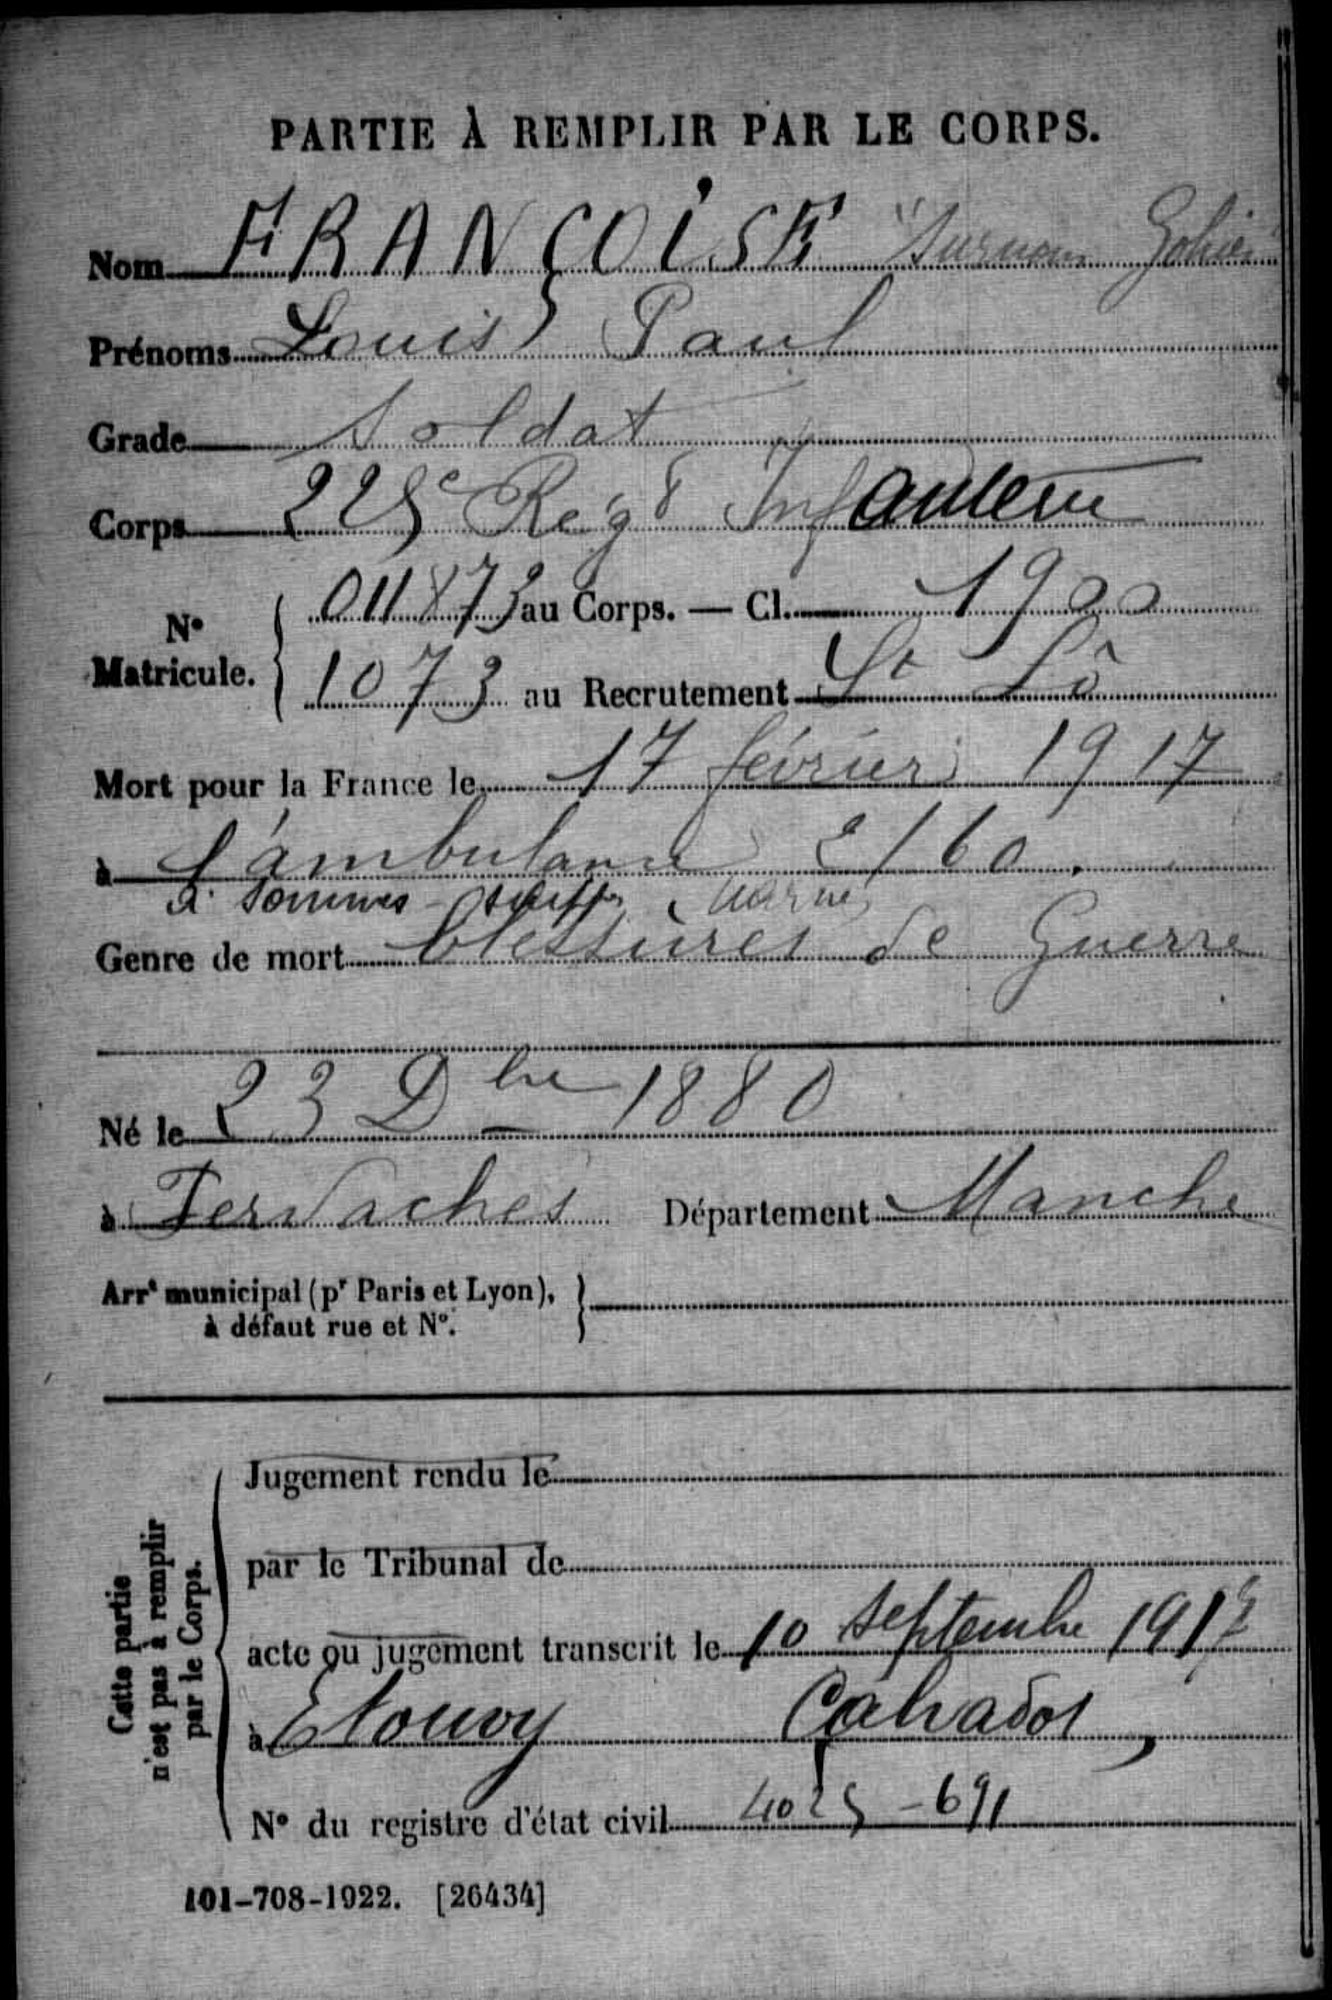 PARTIE À REMPLIR PAR LE CORPS.
Nom FRANÇOISE "surnom Gohier"
Prénoms Louis Paul
Grade Soldat
Corps 225e Reg d Infanterie
No Matricule. 011873 au Corps. — Cl. 1900
1073 au Recrutement St Lô
Mort pour la France le 17 février 1917
à l'ambulance 2/60.
à Somme-Suippe Marne
Genre de mort blessures de Guerre
Né le 23 Dbre 1880
à Fervaches Département Manche
Arrt municipal (pr Paris et Lyon),
à défaut rue et No.
Cette partie
n'est pas à remplir
par le Corps.
Jugement rendu le
par le Tribunal de
acte ou jugement transcrit le 10 septembre 1917
à Etouvy Calvados,
No du registre d'état civil 4025-691
101-708-1922. [26434]